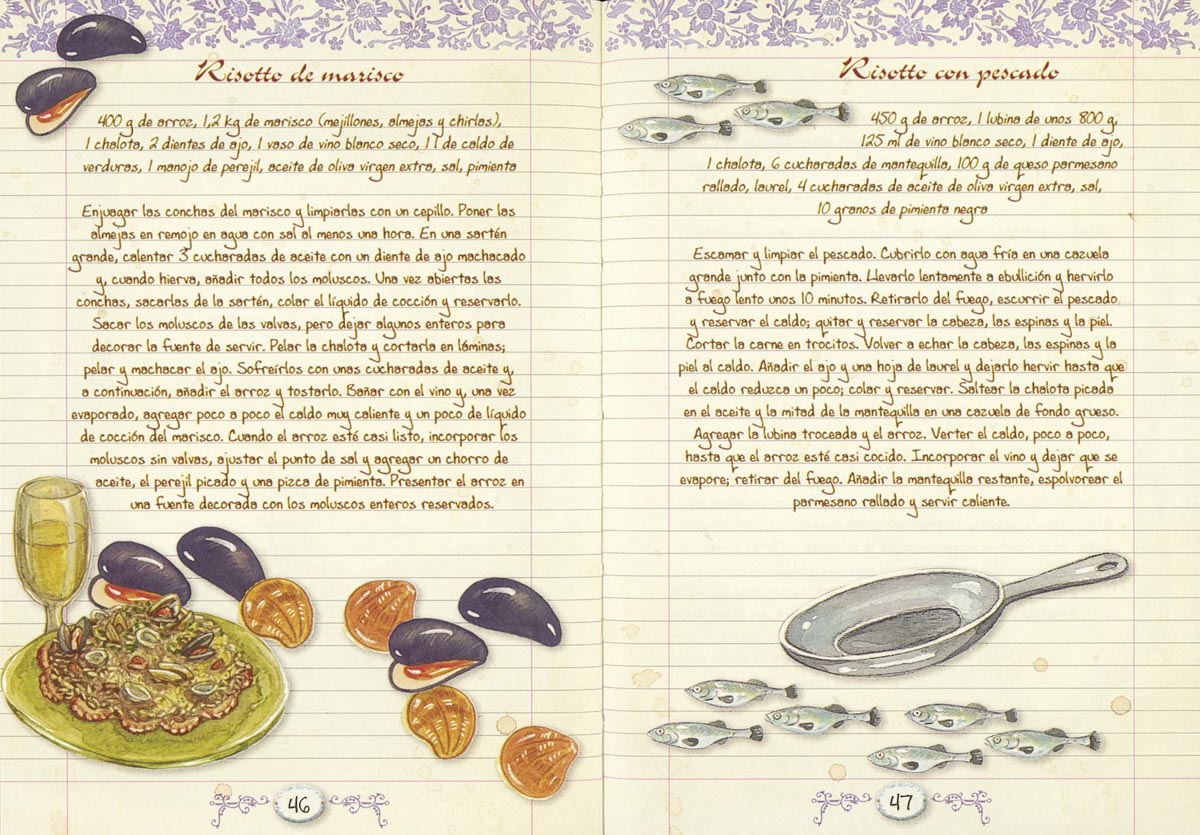 Risotto de marisco
400 g de arroz, 1,2 kg de marisco (mejillones, almejas y chirlas),
1 chalota, 2 dientes de ajo, 1 vaso de vino blanco seco, 1 l de caldo de
verduras, 1 manojo de perejil, aceite de oliva virgen extra, sal, pimienta
Enjuagar las conchas del marisco y limpiarlas con un cepillo. Poner las
almejas en remojo en agua con sal al menos una hora. En una sartén
grande, calentar 3 cucharadas de aceite con un diente de ajo machacado
y, cuando hierva, añadir todos los moluscos. Una vez abiertas las
conchas, sacarlas de la sartén, colar el líquido de cocción y reservarlo.
Sacar los moluscos de las valvas, pero dejar algunos enteros para
decorar la fuente de servir. Pelar la chalota y cortarla en láminas;
pelar y machacar el ajo. Sofreírlos con unas cucharadas de aceite y,
a continuación, añadir el arroz y tostarlo. Bañar con el vino y, una vez
evaporado, agregar poco a poco el caldo muy caliente y un poco de líquido
de cocción del marisco. Cuando el arroz esté casi listo, incorporar los
moluscos sin valvas, ajustar el punto de sal y agregar un chorro de
aceite, el perejil picado y una pizca de pimienta. Presentar el arroz en
una fuente decorada con los moluscos enteros reservados.
46
Risotto con pescado
450 g de arroz, 1 lubina de unos 800 g,
125 ml de vino blanco seco, 1 diente de ajo,
1 chalota, 6 cucharadas de mantequilla, 100 g de queso parmesano
rallado, laurel, 4 cucharadas de aceite de oliva virgen extra, sal,
10 granos de pimienta negra
Escamar y limpiar el pescado. Cubrirlo con agua fría en una cazuela
grande junto con la pimienta. Llevarlo lentamente a ebullición y hervirlo
a fuego lento unos 10 minutos. Retirarlo del fuego, escurrir el pescado
y reservar el caldo; quitar y reservar la cabeza, las espinas y la piel.
Cortar la carne en trocitos. Volver a echar la cabeza, las espinas y la
piel al caldo. Añadir el ajo y una hoja de laurel y dejarlo hervir hasta que
el caldo reduzca un poco; colar y reservar. Saltear la chalota picada
en el aceite y la mitad de la mantequilla en una cazuela de fondo grueso.
Agregar la lubina troceada y el arroz. Verter el caldo, poco a poco,
hasta que el arroz esté casi cocido. Incorporar el vino y dejar que se
evapore; retirar del fuego. Añadir la mantequilla restante, espolvorear el
parmesano rallado y servir caliente.
47